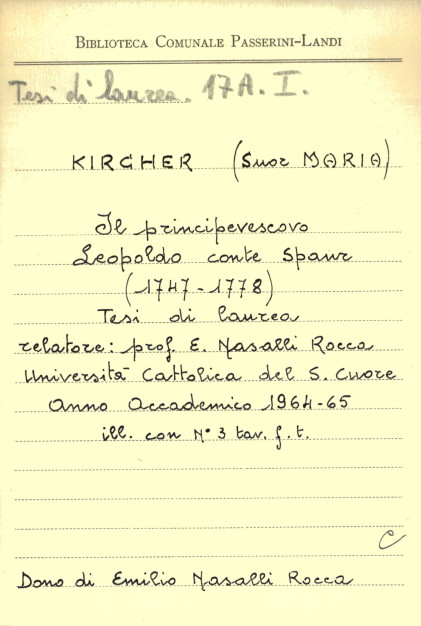 BIBLIOTECA COMUNALE PASSERINI-LANDI
Tesi di laurea. 17A. I.
KIRCHER (Suor MARIA)
Il principevescovo
Leopoldo conte Spaur
(1747-1778)
Tesi di laurea
relatore: prof. E. Nasalli Rocca
Università Cattolica del S. Cuore
Anno Accademico 1964-65
ill. con N° 3 tav. f. t.
C
Dono di Emilio Nasalli Rocca